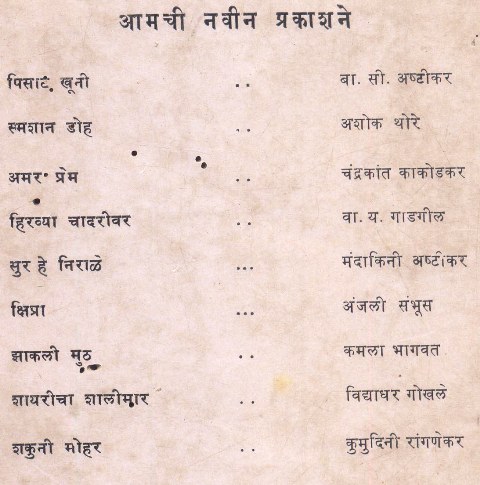 आमची नवीन प्रकाशने
पिसाट खूनी .. बा. सी. अष्टीकर
स्मशान डोह .. अशोक थोरे
अमर प्रेम .. चंद्रकांत काकोडकर
हिरव्या चादरीवर .. वा. य. गाडगीळ
सुर हे निराळे ... मंदाकिनी अष्टीकर
क्षिप्रा ... अंजली संभूस
झाकली मुठ .. कमला भागवत
शायरीचा शालीमार .. विद्याधर गोखले
शकुनी मोहर .. कुमुदिनी रांगणेकर